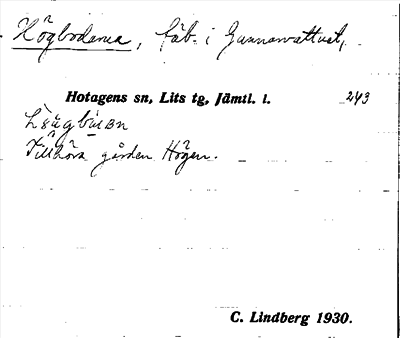 Högbodarna, fäb. i Gunnarvattnet,
Hotagens sn, Lits tg, Jämtl. l. 243
Tillhöra gården Högen.
C. Lindberg 1930.